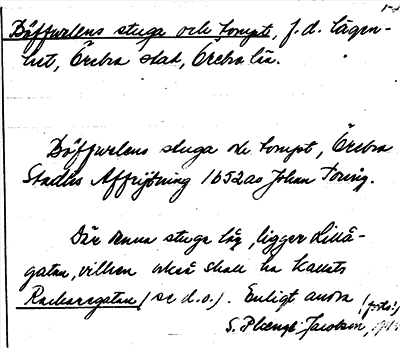 Döffwelens stuga och tompt, f.d. lägen-
het, Örebro stad, Örebro län.
Döffwelens stuga oc tompt, Örebro
Stadhs Affrijtning 1652 ao Johan Toring.
Där denna stuga låg, ligger Lillå-
gatan, vilken också skall ha kallats
Rackaregatan (se d.o.). Enligt andra (forts!)
S. Plaenge Jacobson, 1914